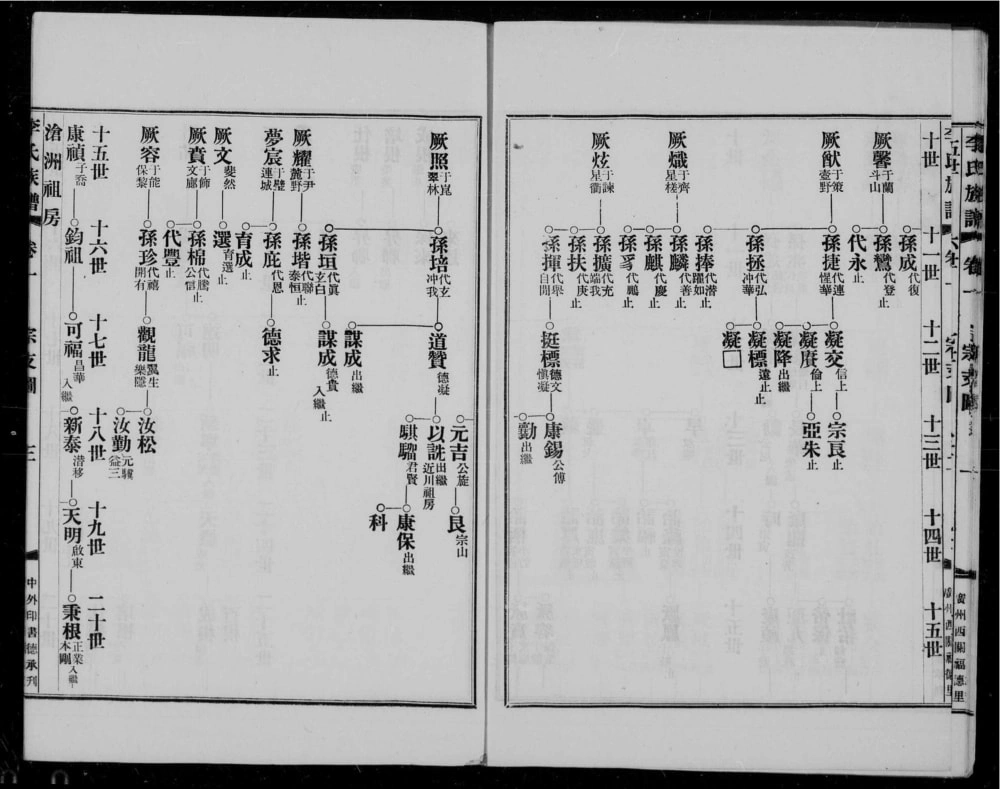 李氏族譜
卷一
宗支圖
廣州西關福德里
十世
十一世
十二世
十三世
十四世
十五世
孫成 代復
厥馨 于蘭 斗山
孫鸞 代登 止
代永 止
厥猷 于策 壺野
孫捷 代連 惺華
凝交 信上 止
宗良 止
凝賡 倫上 止
亞朱 止
凝降 出繼
孫拯 代弘 冲華
凝標 遠止 止
凝□
孫捧 代潛 躍如 止
厥熾 于齊 星槎
孫麟 代善 止
孫麒 代慶 止
代鵬 止
厥炫 于諫 星衢
孫擴 代充 端我
孫扶 代庚 止
孫揮 代舉 自閒
挺標 德文 慎凝
康錫 公傅
勳 出繼
厥照 于崑 翠林
孫培 代玄 冲我
道贊 德凝
元吉 公旋
良 宗山
以詵 出繼 近川祖房
騏騮 君賢
康保 出繼
科
謀成 出繼
孫垣 代滇 玄白
謀成 德貴 入繼 止
厥耀 于尹 麓野
孫堦 代聯 泰恒 止
夢宸 于璧 連城
孫庇 代恩
德求 止
育成 止
厥文 斐然
選 育選 止
厥賁 于飾 文廊
孫棉 代騰 公信 止
代豐 止
厥容 于能 保黎
孫珍 代禧 開有
觀龍 翼生 樂隱
汝松
汝勤 元驥 益三
十五世
十六世
十七世
十八世
十九世
二十世
滄洲祖房
康禎 于喬
鈞祖
可福 昌華 入繼
新泰 潛移
天明 啟東
秉根 正業 入繼 本剛
李氏族譜
卷一
宗支圖
三
中外印書德承刊